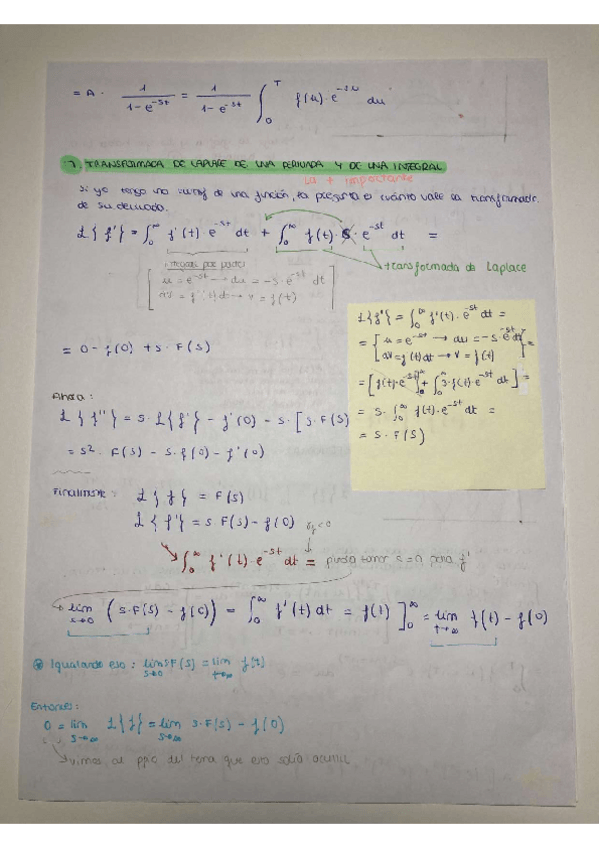 = A · 1/(1-e^{-st}) = 1/(1-e^{-st}) ∫_0^T f(u)·e^{-su} du
7. TRANSFORMADA DE LAPLACE DE UNA DERIVADA Y DE UNA INTEGRAL
La + importante
Si yo tengo una transf de una función, la pregunta es cuánto vale la transformada
de su derivada.
L{f'} = ∫_0^∞ f'(t) e^{-st} dt + ∫_0^∞ f(t)·s·e^{-st} dt =
transformada de Laplace
Integral por partes
[u = e^{-st} → du = -s·e^{-st} dt
dv = f'(t)dt → v = f(t)]
= 0 - f(0) + s·F(s)
L{f'} = ∫_0^∞ f'(t)·e^{-st} dt =
= {u = e^{-st} → du = -s·e^{-st} dt
dv = f'(t)dt → v = f(t)} =
= [f(t)·e^{-st}]_0^∞ + ∫_0^∞ s·f(t)·e^{-st} dt] =
= s·∫_0^∞ f(t)·e^{-st} dt =
= s·F(s)
Ahora:
L{f''} = s·L{f'} - f'(0) = s·[s·F(s)
= s²·F(s) - s·f(0) - f'(0)
Finalmente: L{f} = F(s)
L{f'} = s F(s) - f(0)
∫_0^∞ f'(t)·e^{-st} dt = puedo tomar s=0 para f'
lim_{s→0} (s·F(s) - f(0)) = ∫_0^∞ f'(t) dt = f(t)]_0^∞ = lim_{t→∞} f(t) - f(0)
Igualando eso: lim_{s→0} sF(s) = lim_{t→∞} f(t)
Entonces:
0 = lim_{s→∞} L{f} = lim_{s→∞} s·F(s) - f(0)
vimos al ppio del tema que eso solía ocurrir